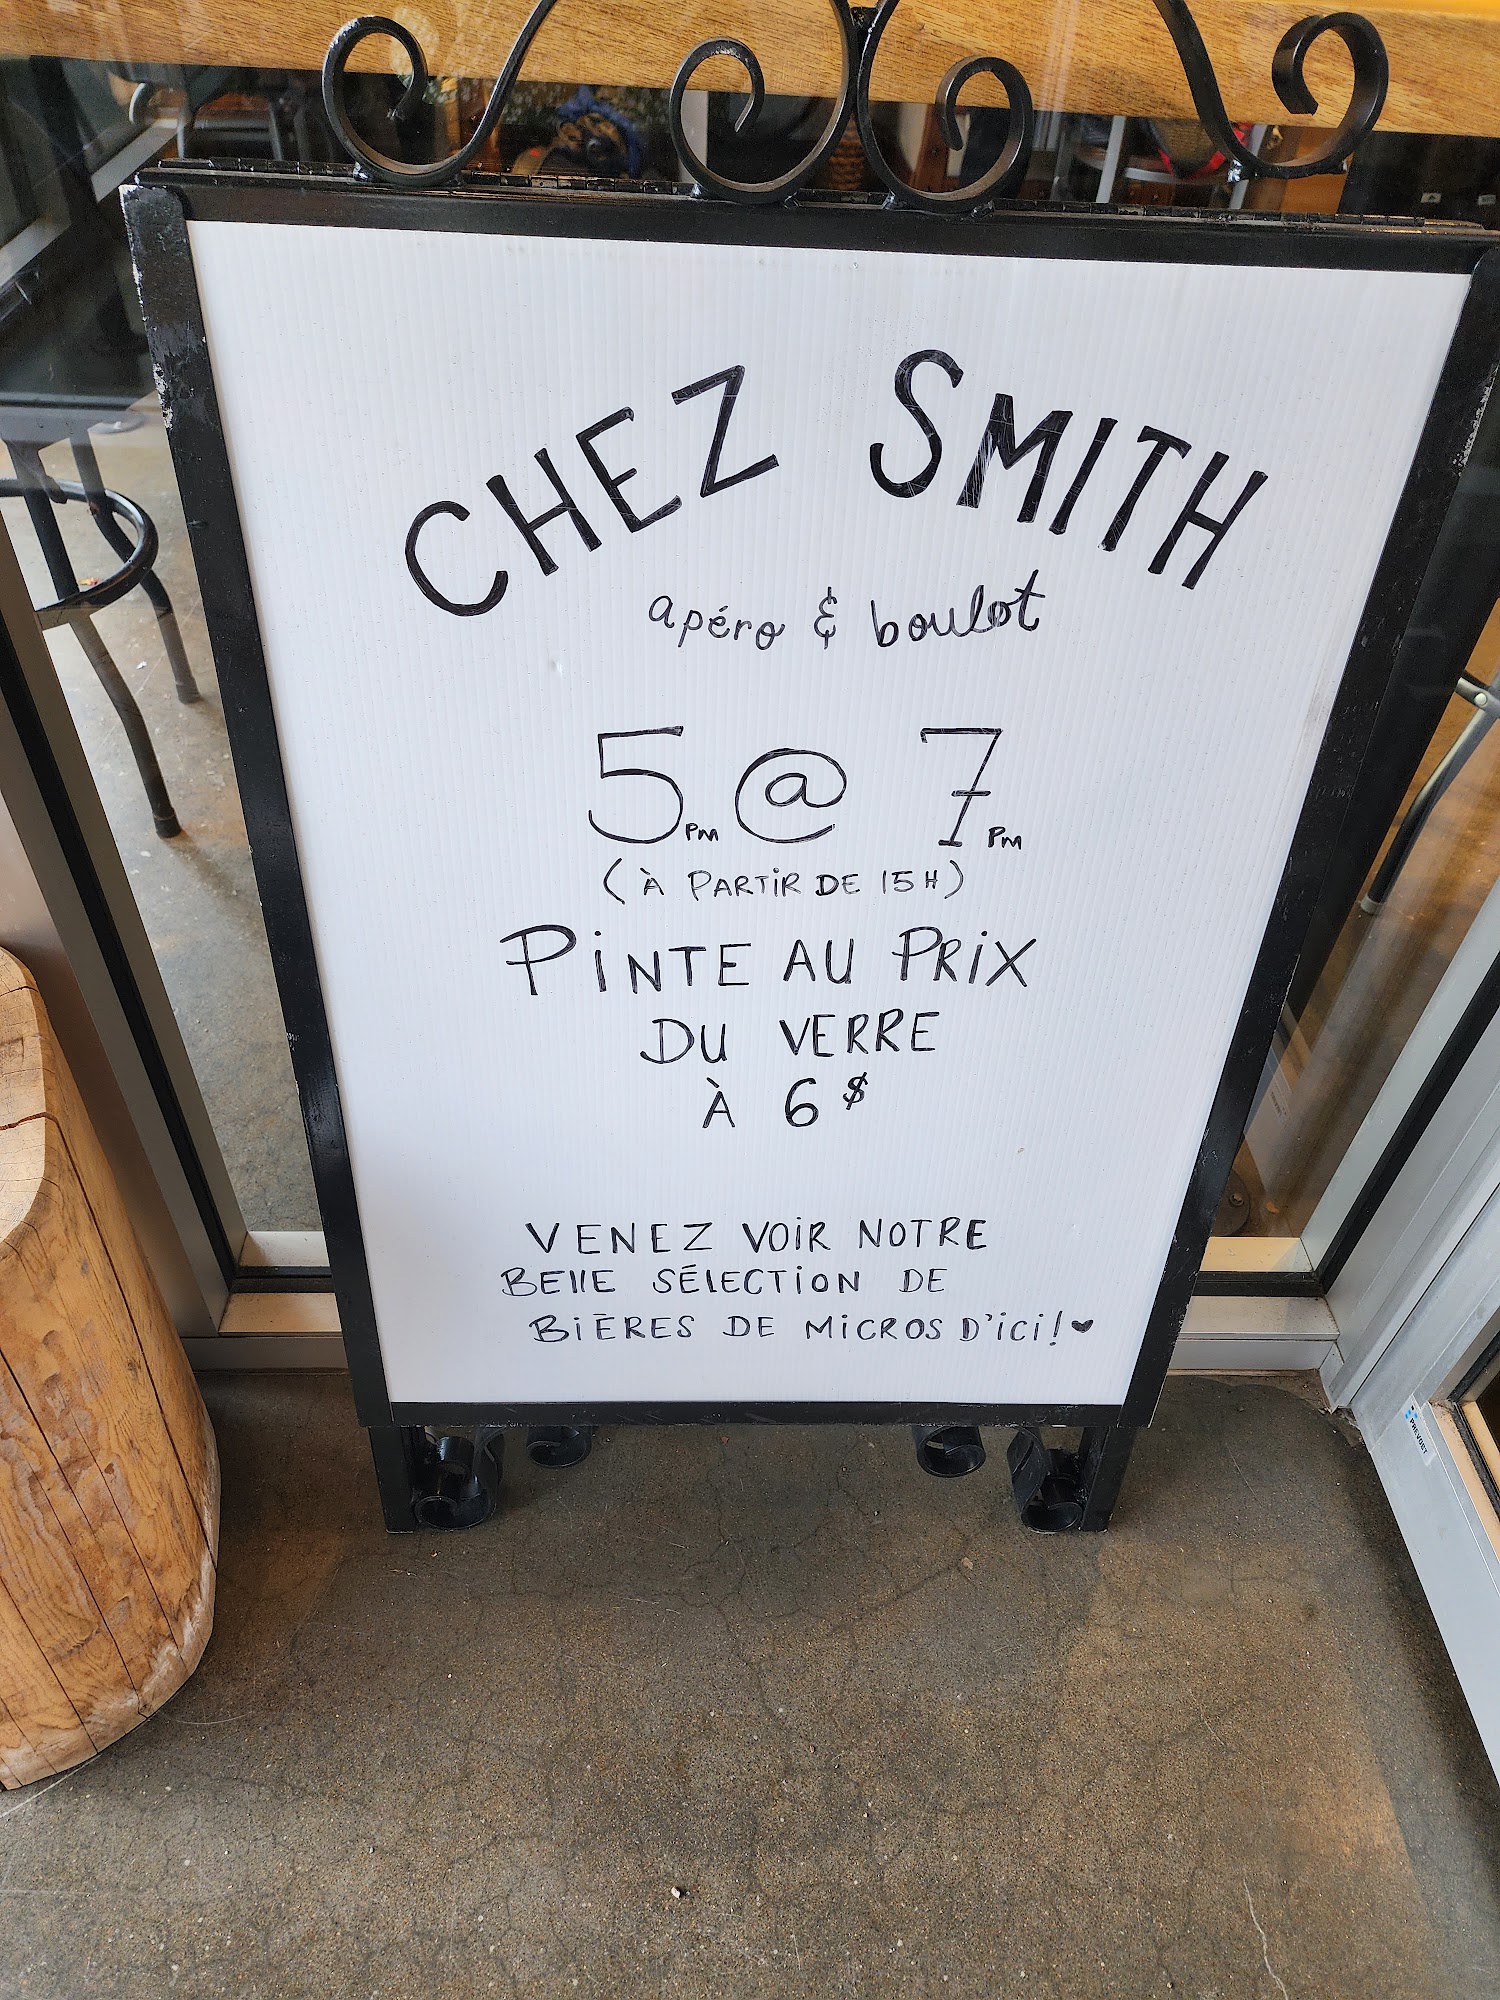 CHEZ SMITH
apéro & boulot
5PM @ 7PM
(À PARTIR DE 15H)
PINTE AU PRIX
DU VERRE
À 6$
VENEZ VOIR NOTRE
BELLE SÉLECTION DE
BIÈRES DE MICROS D'ICI! ♥
PREVOST